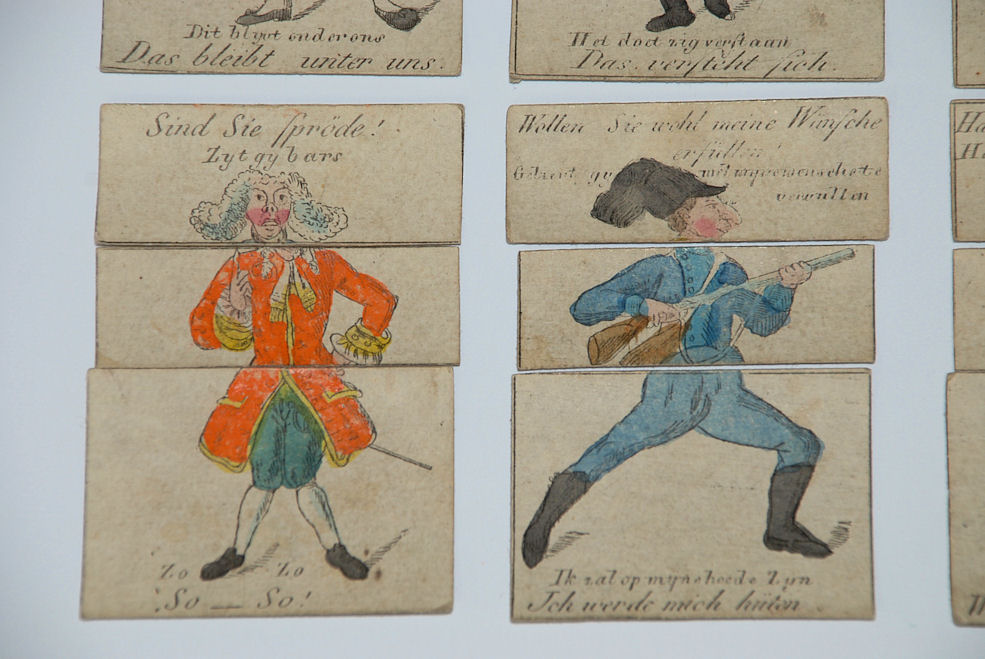 Dit blyvt onder ons
Das bleibt unter uns.
Het doet zig verstaan
Das versteht sich.
Sind Sie spröde!
Zyt gy bars
Wollen Sie wohl meine Wünsche
erfüllen!
gy myne wenschete
vervullen
Zo Zo
So — So!
Ik zal op myn hoede Zyn
Ich werde mich hüten